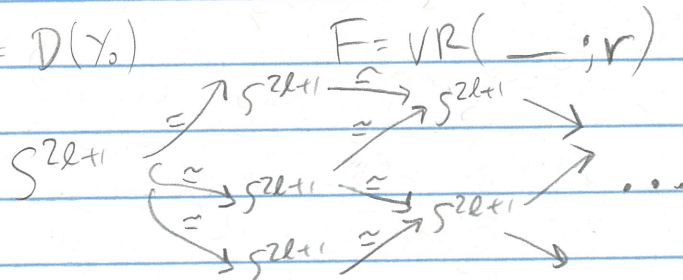 = D(Y₀) F = VR( __ ; r)
= S²ˡ⁺¹ ≃ S²ˡ⁺¹
S²ˡ⁺¹ ≃ S²ˡ⁺¹ ≃ ≃ S²ˡ⁺¹ ...
≃ S²ˡ⁺¹ ≃